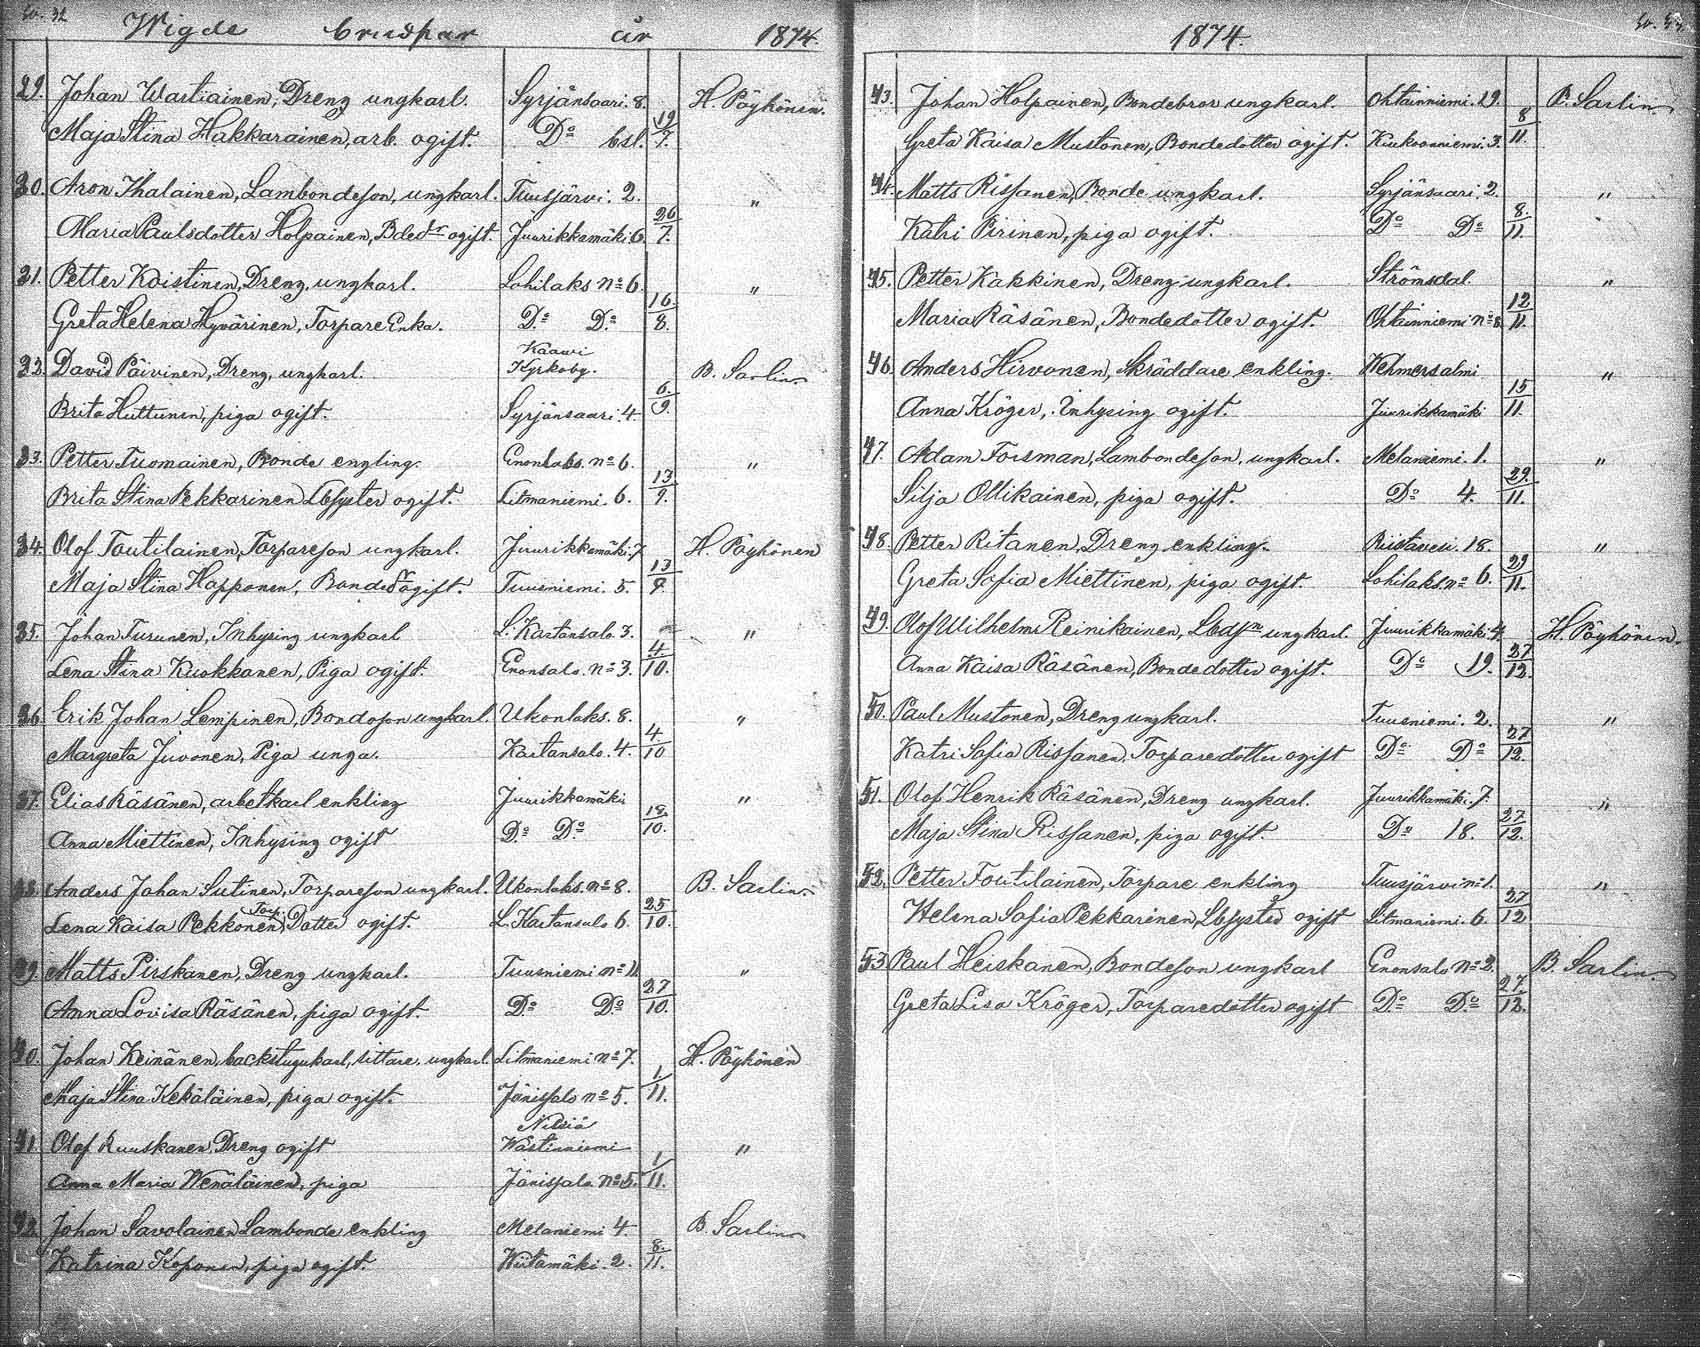 Wigde brudpar år 1874.
29. Johan Wartiainen, Dreng ungkarl. Syrjänsaari. 8. H. Pöyhönen.
Maja Stina Hakkarainen, arb. ogift. Do bsl. 19/7.
30. Aron Ihalainen, Lambondeson, ungkarl. Tuusjärvi. 2. "
Maria Paulsdotter Holpainen, Bdedr ogift. Juurikkamäki 6. 26/7.
31. Petter Koistinen, Dreng, ungkarl. Lohilaks No 6. "
Greta Helena Hyvärinen, Torpare Enka. Do Do 16/8.
Kaawi
32. David Päivinen, Dreng, ungkarl. Kyrkoby. B. Sarlin
Brita Huttunen, piga ogift. Syrjänsaari. 4. 6/9.
33. Petter Tuomainen, Bonde engling. Enonlaks. No 6. "
Brita Stina Pekkarinen Lbsyster ogift. Litmaniemi. 6. 13/9.
34. Olof Toutilainen, Torpareson ungkarl. Juurikkamäki. 7 H. Pöyhönen
Maja Stina Hopponen, Bondedr ogift. Tuusniemi. 5. 13/9.
35. Johan Turunen, Inhysing ungkarl L. Kartansalo 3. "
Lena Stina Kuokkanen, Piga ogift. Enonsalo. No 3. 4./10.
36. Erik Johan Lempinen, Bondeson ungkarl. Ukonlaks. 8. "
Margreta Juvonen, Piga unga. Kartansalo. 4. 4/10
37. Elias Räsänen, arbetkarl enkling Juurikkamäki "
Anna Miettinen, Inhysing ogift Do Do 18/10.
38. Anders Johan Sutinen, Torpareson ungkarl. Ukonlaks. No 8. B. Sarlin.
Lena Kaisa Pekkonen, Torp. Dotter ogift. L. Kartansalo 6. 25/10.
39. Matts Pirskanen, Dreng ungkarl. Tuusniemi No 11 "
Anna Lovisa Räsänen, piga ogift. Do Do 27/10.
40. Johan Keinänen, backstugukarl, sittare, ungkarl. Litmaniemi No 7. H. Pöyhönen
Maja Stina Kekäläinen, piga ogift. Jänissalo No 5. 1./11.
Nilsiä
41. Olof Ruuskanen, Dreng ogift Wästinniemi "
Anna Maria Wenäläinen, piga Jänissalo No 5. 1/11.
42. Johan Savolainen Lambonde enkling Melaniemi 4. B Sarlin
Katrina Koponen, piga ogift. Wiitamäki. 2. 8./11.
1874.
43. Johan Holpainen, Bondebror ungkarl. Ohtainniemi. 29. B. Sarlin
Greta Kaisa Mustonen, Bondedotter ogift. Kiukoonniemi. 3. 8/11.
44. Matts Rissanen, Bonde ungkarl. Syrjänsaari. 2. "
Katri Pirinen, piga ogift. Do Do 8./11.
45. Petter Kakkinen, Dreng ungkarl. Strömsdal. "
Maria Räsänen, Bondedotter ogift. Ohtainniemi No 8 12/11.
46. Anders Hirvonen, Skräddare enkling. Wehmersalmi "
Anna Kröger, Inhysing ogift. Juurikkamäki 15/11.
47. Adam Forsman, Lambondeson, ungkarl. Melaniemi. 1. "
Silja Ollikainen, piga ogift. Do 4. 29./11.
48. Petter Ritanen, Dreng enkling. Riistavesi. 18. "
Greta Sofia Miettinen, piga ogift. Lohilaks No 6. 29/11.
49. Olof Wilhelm Reinikainen, Lbdsn ungkarl. Juurikkamäki. 4. H. Pöyhönen.
Anna Kaisa Räsänen, Bondedotter ogift. Do 19. 27/12.
50. Paul Mustonen, Dreng ungkarl. Tuusniemi. 2. "
Katri Sofia Rissanen, Torparedotter ogift Do Do 27/12.
51. Olof Henrik Räsänen, Dreng ungkarl. Juurikkamäki. 7. "
Maja Stina Rissanen, piga ogift. Do 18. 27/12.
52. Petter Toutilainen, Torpare enkling Tuusjärvi No 1. "
Helena Sofia Pekkarinen, Lbsyster ogift Litmaniemi. 6. 27/12
53 Paul Heiskanen, Bondeson ungkarl Enonsalo No 2. B. Sarlin
Greta Lisa Kröger, Torparedotter ogift Do Do 27./12.